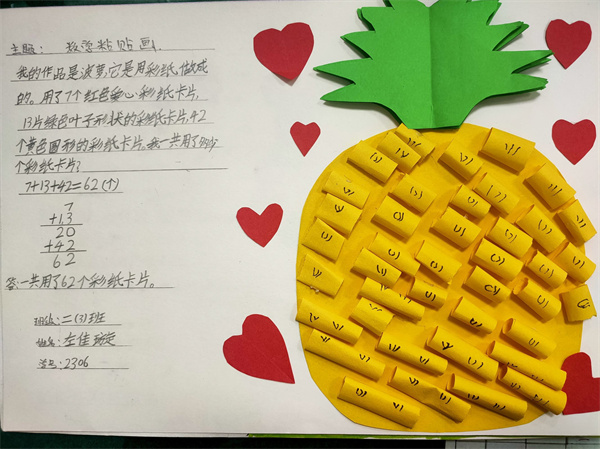 主题: 数学粘贴画.
我的作品是波萝,它是用彩纸做成
的。用了7个红色爱心彩纸卡片,
13片绿色叶子形状的彩纸卡片,42
个黄色圆形的彩纸卡片。我一共用了多少
个彩纸卡片?
7+13+42=62(个)
7
+13
20
+42
62
答:一共用了62个彩纸卡片。
班级:二(3)班
姓名:左佳
学号:2306